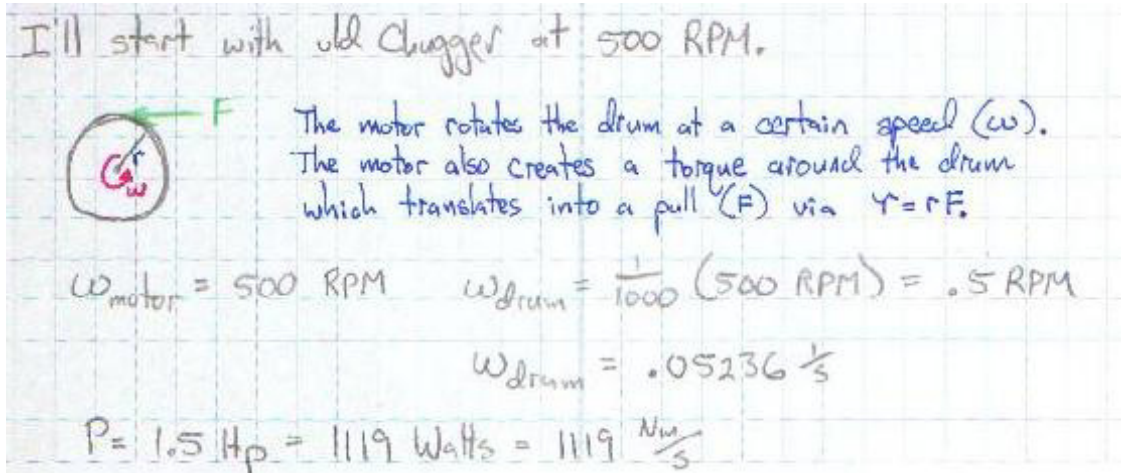 I'll start with old Chugger at 500 RPM.
F
r
ω
The motor rotates the drum at a certain speed (ω).
The motor also creates a torque around the drum
which translates into a pull (F) via τ=rF.
ω_motor = 500 RPM ω_drum = 1/1000 (500 RPM) = .5 RPM
ω_drum = .05236 1/s
P= 1.5 Hp = 1119 Watts = 1119 Nm/s